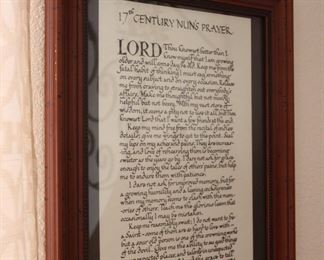 17th CENTURY NUNS PRAYER
LORD Thou Knowest better than I
Know myself that I am growing
older and will some day be old. Keep me from the
fatal habit of thinking I must say something
on every subject and on every occasion. Release
me from craving to straighten out everybody's
affairs. Make me thoughtful but not moody:
helpful but not bossy. With my vast store of
wisdom, it seems a pity not to use it all, but Thou
Knowest Lord that I want a few friends at the end.
Keep my mind free from the recital of endless
details; give me wings to get to the point. Seal
my lips on my aches and pains. They are increas-
ing, and love of rehearsing them is becoming
sweeter as the years go by. I dare not ask for grace
enough to enjoy the tales of others' pains, but help
me to endure them with patience.
I dare not ask for improved memory, but for
a growing humility and a lessing cocksureness
when my memory seems to clash with the mem-
ories of others. Teach me the glorious lesson that
occasionally I may be mistaken.
Keep me reasonably sweet; I do not want to be
a Saint - some of them are so hard to live with -
but a sour old person is one of the crowning works
of the devil. Give me the ability to see good things
in unexpected places, and talents in unexpected